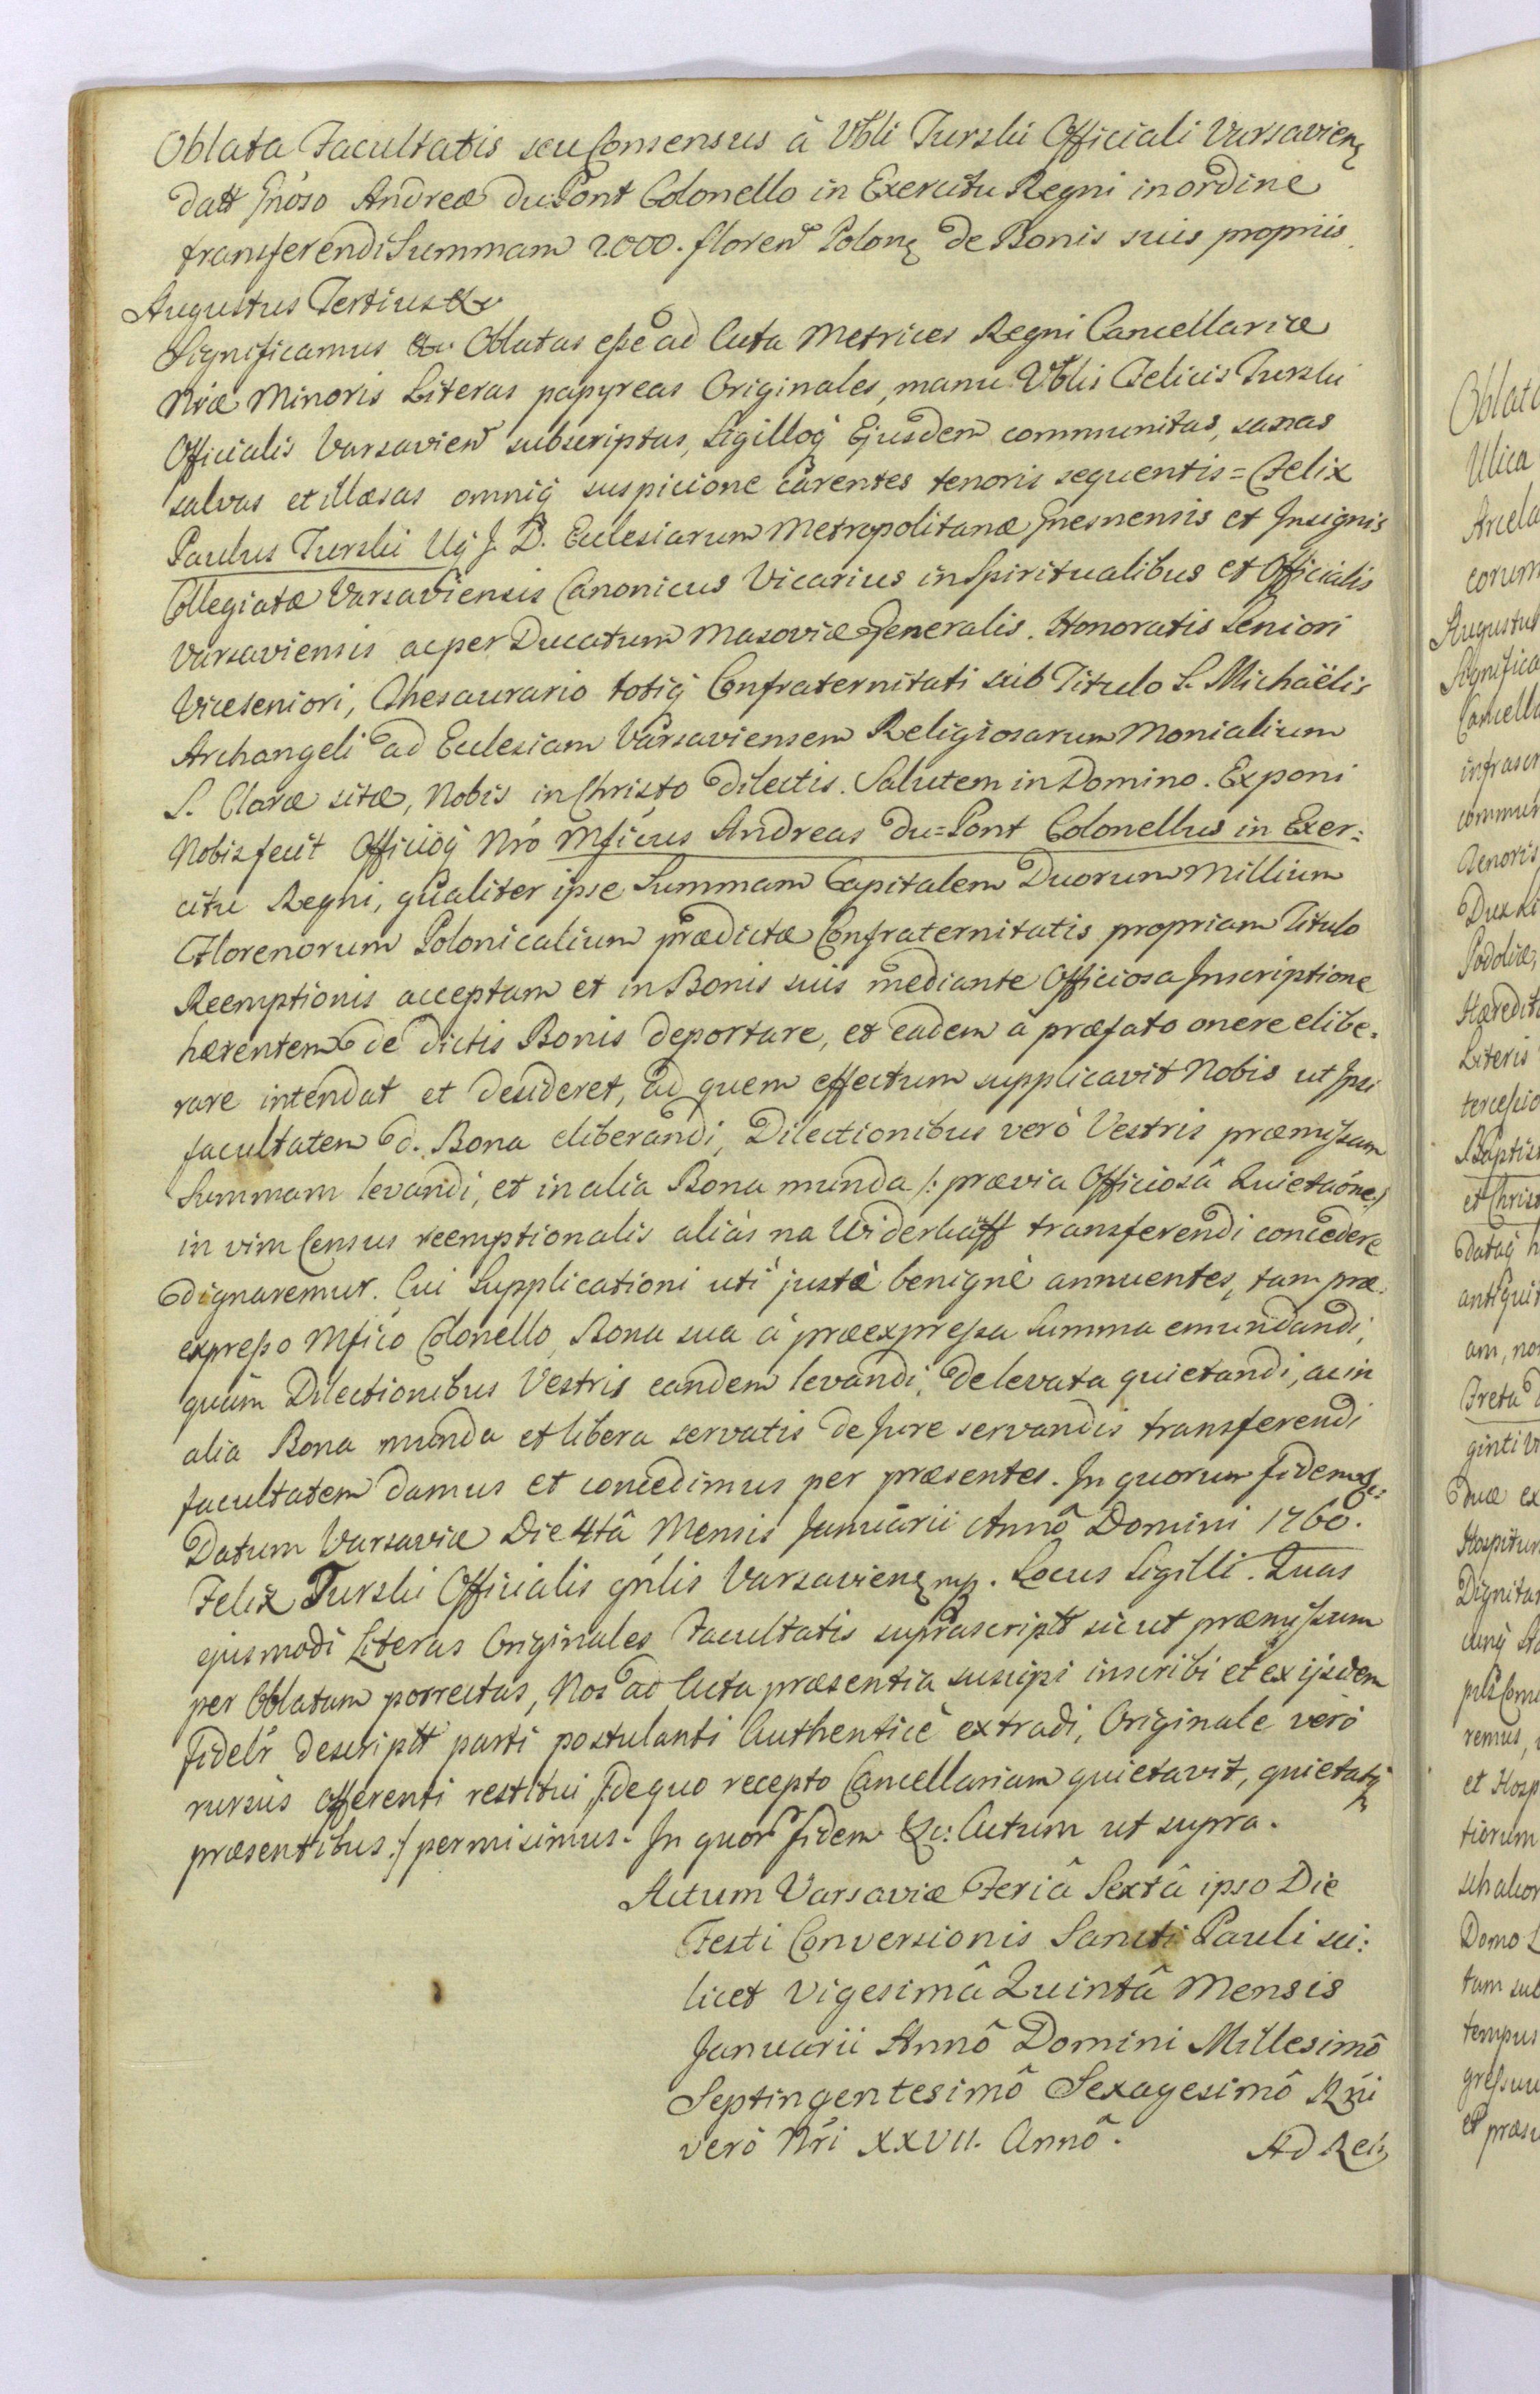 Oblata Facultatis seu Consensus à Vbli Turski Officiali Varsavien
datt Gnoso Andreæ du Pont Colonello in Exercitu Regni in ordine
transferendi Summam 2000. floren Polon de Bonis suis propriis
Augustus Tertius &c
Significamus &c Oblatas esse ad Acta Metrices Regni Cancellariæ
Nræ Minoris Literas papyreas Originales, manu Vblis Felicis Turski
Officialis Varsavien subscriptas, Sigilloq Ejusdem communitas, sanas
salvas et illæsas omniq suspicione carentes tenoris sequentis = Felix
Paulus Turski Uq J. D. Ecclesiarum Metropolitanæ Gnesnensis et Insignis
Collegiatæ Varsaviensis Canonicus Vicarius in Spiritualibus et Officialis
Varsaviensis ac per Ducatum Masoviæ Generalis. Honoratis Seniori
Viceseniori, Thesaurario totiq Confraternitati sub Titulo S. Michaëlis
Archangeli ad Ecclesiam Varsaviensem Religiosarum Monialium
S. Claræ sitæ, Nobis in Christo Dilectis. Salutem in Domino. Exponi
Nobis fecit Officioq Nro Mficus Andreas du=Pont Colonellus in Exer=
citu Regni, qualiter ipse Summam Capitalem Duorum Millium
Florenorum Polonicalium prædictæ Confraternitatis propriam Titulo
Reemptionis acceptam et in Bonis suis mediante Officiosa Inscriptione
hærentem de dictis Bonis deportare, et eadem à præfato onere elibe=
rare intendat et desideret, ad quem effectum supplicavit Nobis ut Ipsi
facultatem d. Bona eliberandi, Dilectionibus verò Vestris præmissam
Summam levandi, et in alia Bona munda /: prævia Officiosâ Quietaõne:/
in vim Census reemptionalis aliàs na Widerkäff transferendi concedere
dignaremur. Cui Supplicationi uti justæ benignè annuentes, tam præ=
expresso Mfico Colonello Bona sua à præexpressa Summa emundandi,
quàm Dilectionibus Vestris eandem levandi, de levata quietandi, ac in
alia Bona munda et libera servatis de Jure servandis transferendi
facultatem damus et concedimus per præsentes. In quorum fidem &c:
Datum Varsaviæ Die 4tâ Mensis Januarii Annô Domini 1760.
Felix Turski Officialis gnlis Varsavien mp. Locus Sigilli. Quas
ejusmodi Literas Originales Facultatis suprascriptt sicut præmissum
per Oblatam porrectas, Nos ad Acta præsentia suscipi inscribi et ex ijsdem
fidelr descriptt parti postulanti Authenticè extradi, Originale verò
rursùs offerenti restitui, /:de quo recepto Cancellariam quietavit, quietatq
præsentibus:/ permisimus. In quor fidem &c: Actum ut supra.
Actum Varsaviæ Feriâ Sextâ ipso Die
Festi Conversionis Sancti Pauli sci:
licet Vigesimâ Quintâ Mensis
Januarii Annô Domini Millesimô
Septingentesimô Sexagesimô Rni
verò Nri XXVII. Annô.
Ad Rel
Oblata
Ulica
corum
Augustus
Significa
Cancella
infrascr
commun
Tenoris
Dux Li
Podoliæ,
Hæredita
Literis
Baptis
et Chris
dataq h
antiqui
am, no
Freta d
ginti
duæ ex
Dignita
remus,
et Hosp
tiorum
Domo
tam sub
tempus
gressu
et præs